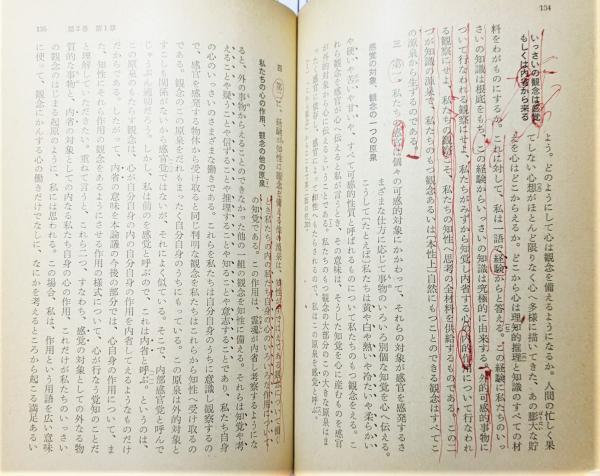 134
いっさいの観念は感覚
もしくは内省から来る
よう。どのようにして心は観念を備えるようになるか。人間の忙しく果
てしない心想がほとんど限りなく心へ多様に描いてきた、あの膨大な貯
えを心はどこからえるか。どこから心は理知的推理と知識のすべての材
料をわがものにするか。これに対して、私は一語で経験からと答える。この経験に私たちのいっ
さいの知識は根底をもち、この経験からいっさいの知識は究極的に由来する。外的可感的事物に
ついて行なわれる観察にせよ、私たちがみずから知覚し内省する心の内的作用について行なわれ
る観察にせよ、私たちの観察こそ、私たちの知性へ思考の全材料を供給するものである。この二
つが知識の源泉で、私たちのもつ観念あるいは〔本性上〕自然にもつことのできる観念はすべてこ
の源泉から生ずるのである。
感覚の対象、観念の一つの原泉
三 第一、私たちの感官は個々の可感的対象にかかわって、それらの対象が感官を感発するさ
まざまな仕方に応じ、事物のいろいろ別個な知覚を心へ伝える。
こうしてたとえば〕私たちは黄や白や熱いや冷たいや柔らかい
や硬いや苦いや甘いや、すべて可感的性質と呼ばれるものについて私たちのもつ観念をえる。こ
が外的対象から感官が心へ伝えると私が言うとき、その意味は、そうした知覚を心に産むものを感官
が外的対象から心へ伝えるということである。私たちのもつ観念の大部分のこの大きな原泉はま
135 第2巻 第1章
私たちの心の作用、観念の他の原泉
四 第二に、経験が知性に観念を備える
の知覚である。この作用は、霊魂が内省し考察するようにな
ると、外の事物からえることのできなかった他の一組の観念を知性に備える。それらは知覚や考
えることや疑うことや信ずることや推理することや知ることや意志することであり、私たち自身
の心のいっさいのさまざまな働きである。これらを私たちは自分自身のうちに意識し観察するの
で、感官を感発する物体から受け取ると同じ判明な観念を私たちはこれらから知性へ受け取るの
である。観念のこの原泉をだれもまったく自分自身のうちにもっている。この原泉は外的対象と
すこしも関係がないから感官ではないが、それによく似ている。そこで、内部感官と呼んで
じゅうぶん適切だろう。しかし、私は前のを感覚と呼ぶので、これは内省と呼ぶ。というのは、
この原泉のもたらす観念は、心が自分自身の内の自分の作用を内省してえるようなものだけ
だからである。したがって、内省の意味を本論議の今後の部分では、心自身の作用について、ま
た、知性にこれら作用の観念があるようにさせる作用の様式について、心が行なう覚知のことだ
と理解していただきたい。重ねて言うと、これら二つ、すなわち、感覚の対象としての外なる物
質的な事物と、内省の対象としての内なる私たち自身の心の作用、これだけが私たちのいっさい
の観念のはじまる起原のように、私には思われる。この場合、私は、作用という用語を広い意味
に使って、観念にかんする心の働きだけでなしに、なにかを考えるところから起こる満足あるい